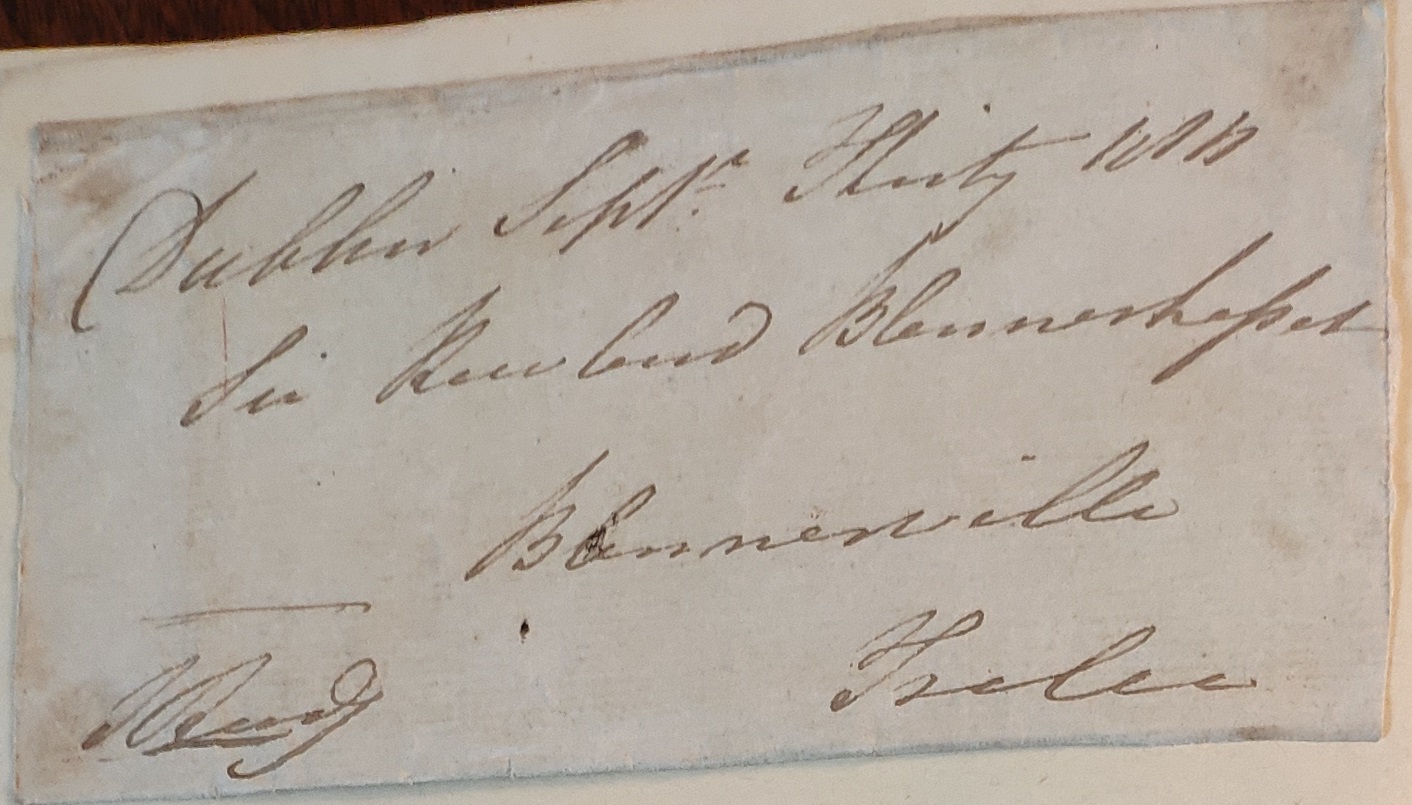 Dublin Septr. Thirty
Sir Rowland Blennerhasset
Blennerville
Tralee